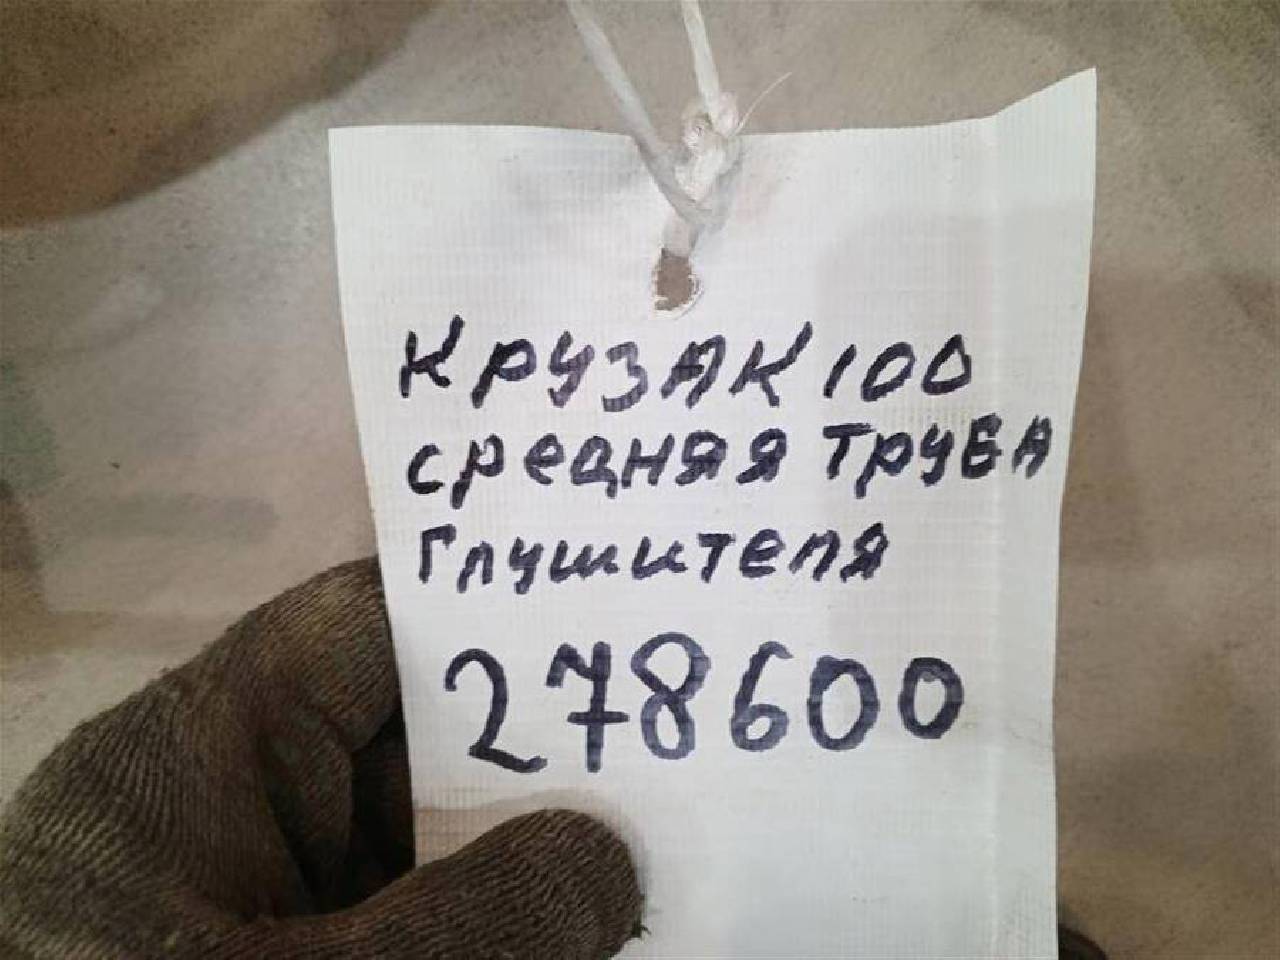 Крузак 100
средняя труба
глушителя
278600